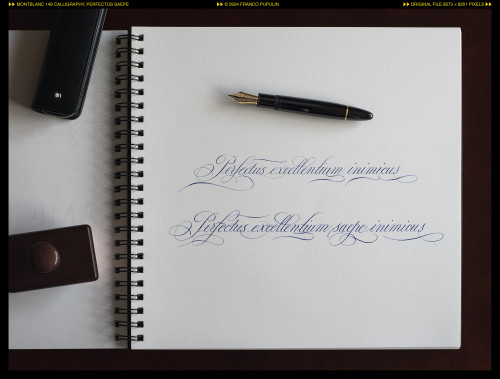 MONTBLANC 149 CALLIGRAPHY, PERFECTUS SAEPE
© 2024 FRANCO PUPULIN
ORIGINAL FILE 8273 × 6201 PIXELS
Perfectus excellentium inimicus
Perfectus excellentium saepe inimicus